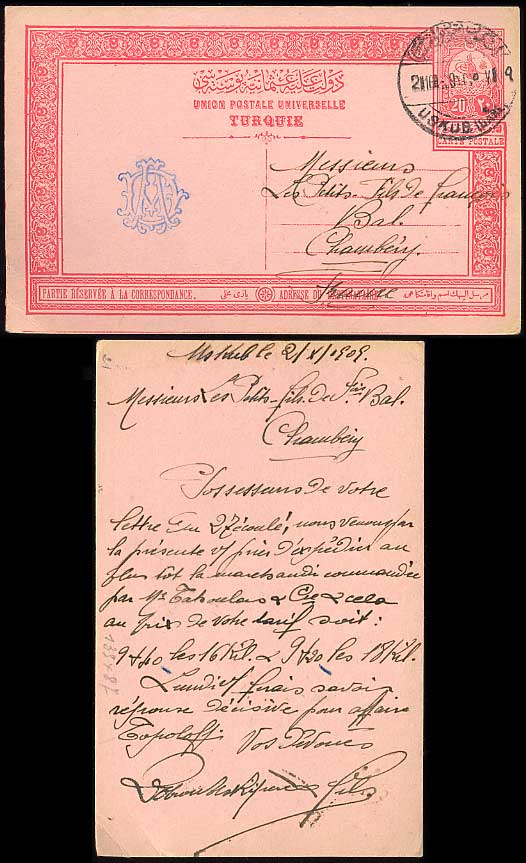 دولت عليه عثمانيه پوسته سى
UNION POSTALE UNIVERSELLE
TURQUIE
20
USKUB
CARTE POSTALE
Messieurs
Les Petits-Fils de François
Bal.
Chambéry.
France
PARTIE RÉSERVÉE À LA CORRESPONDANCE.
ADRESSE DU
Uskub le 2/X/1909.
Messieurs Les Petits-fils de Fçois Bal.
Chambéry
Possesseurs de votre
lettre du 27 écoulé, nous venons par
la présente v/ prier d'expédier au
plus tôt la marchandise commandée
par Mr & Cie & cela
au prix de votre tarif soit:
9f40 les 16 Kil. & 9f30 les 18 Kil.
Lundi v/ ferais savoir
réponse décisive pour affaire
Topoloff. Vos Dévoués
& Fils